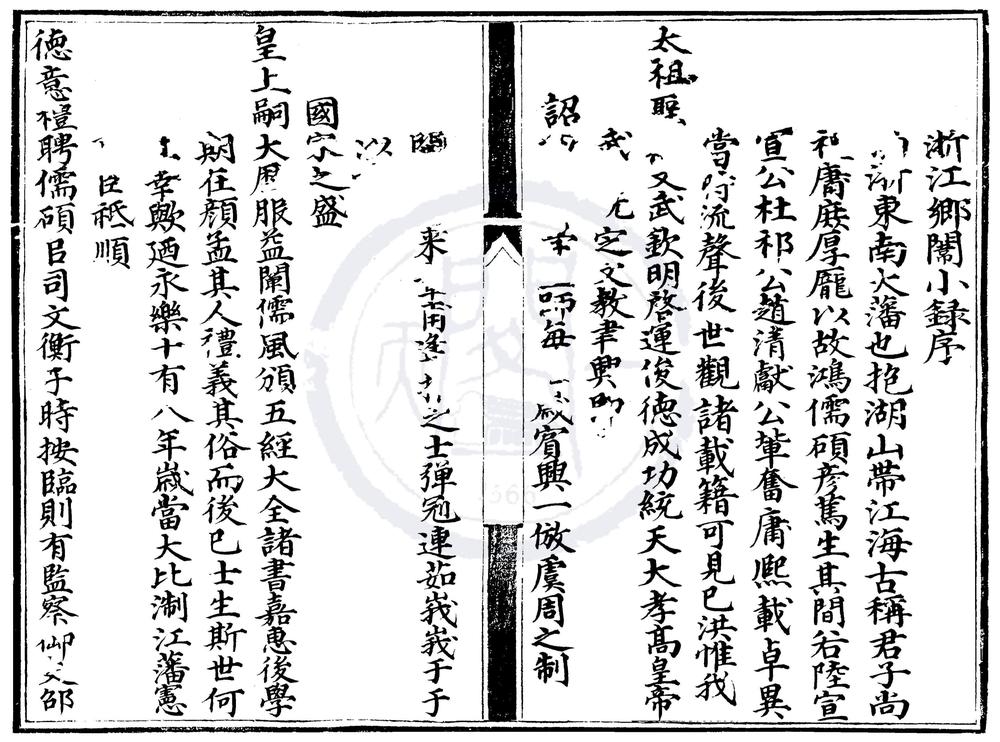 浙江鄉闈小録序
浙東南大藩也抱湖山帶江海古稱君子尚
禮膺庶厚龎以故鴻儒碩彦篤生其間若陸宣
宣公杜祁公趙清獻公輩奮庸熙載卓異
當時流聲後世觀諸載籍可見已洪惟我
太祖聖
又武欽明啓運俊德成功統天大孝髙皇帝
武 定文教聿興
詔 每 歲賓興一倣虞周之制
臨 來 之士彈冠連茹峩峩于于
以
國家之盛
皇上嗣大歷服益闡儒風頒五經大全諸書嘉惠後學
期在顔孟其人禮義其俗而後已士生斯世何
幸歟廼永樂十有八年歲當大比淛江藩憲
臣祗順
德意禮聘儒碩吕司文衡于時按臨則有監察 邵